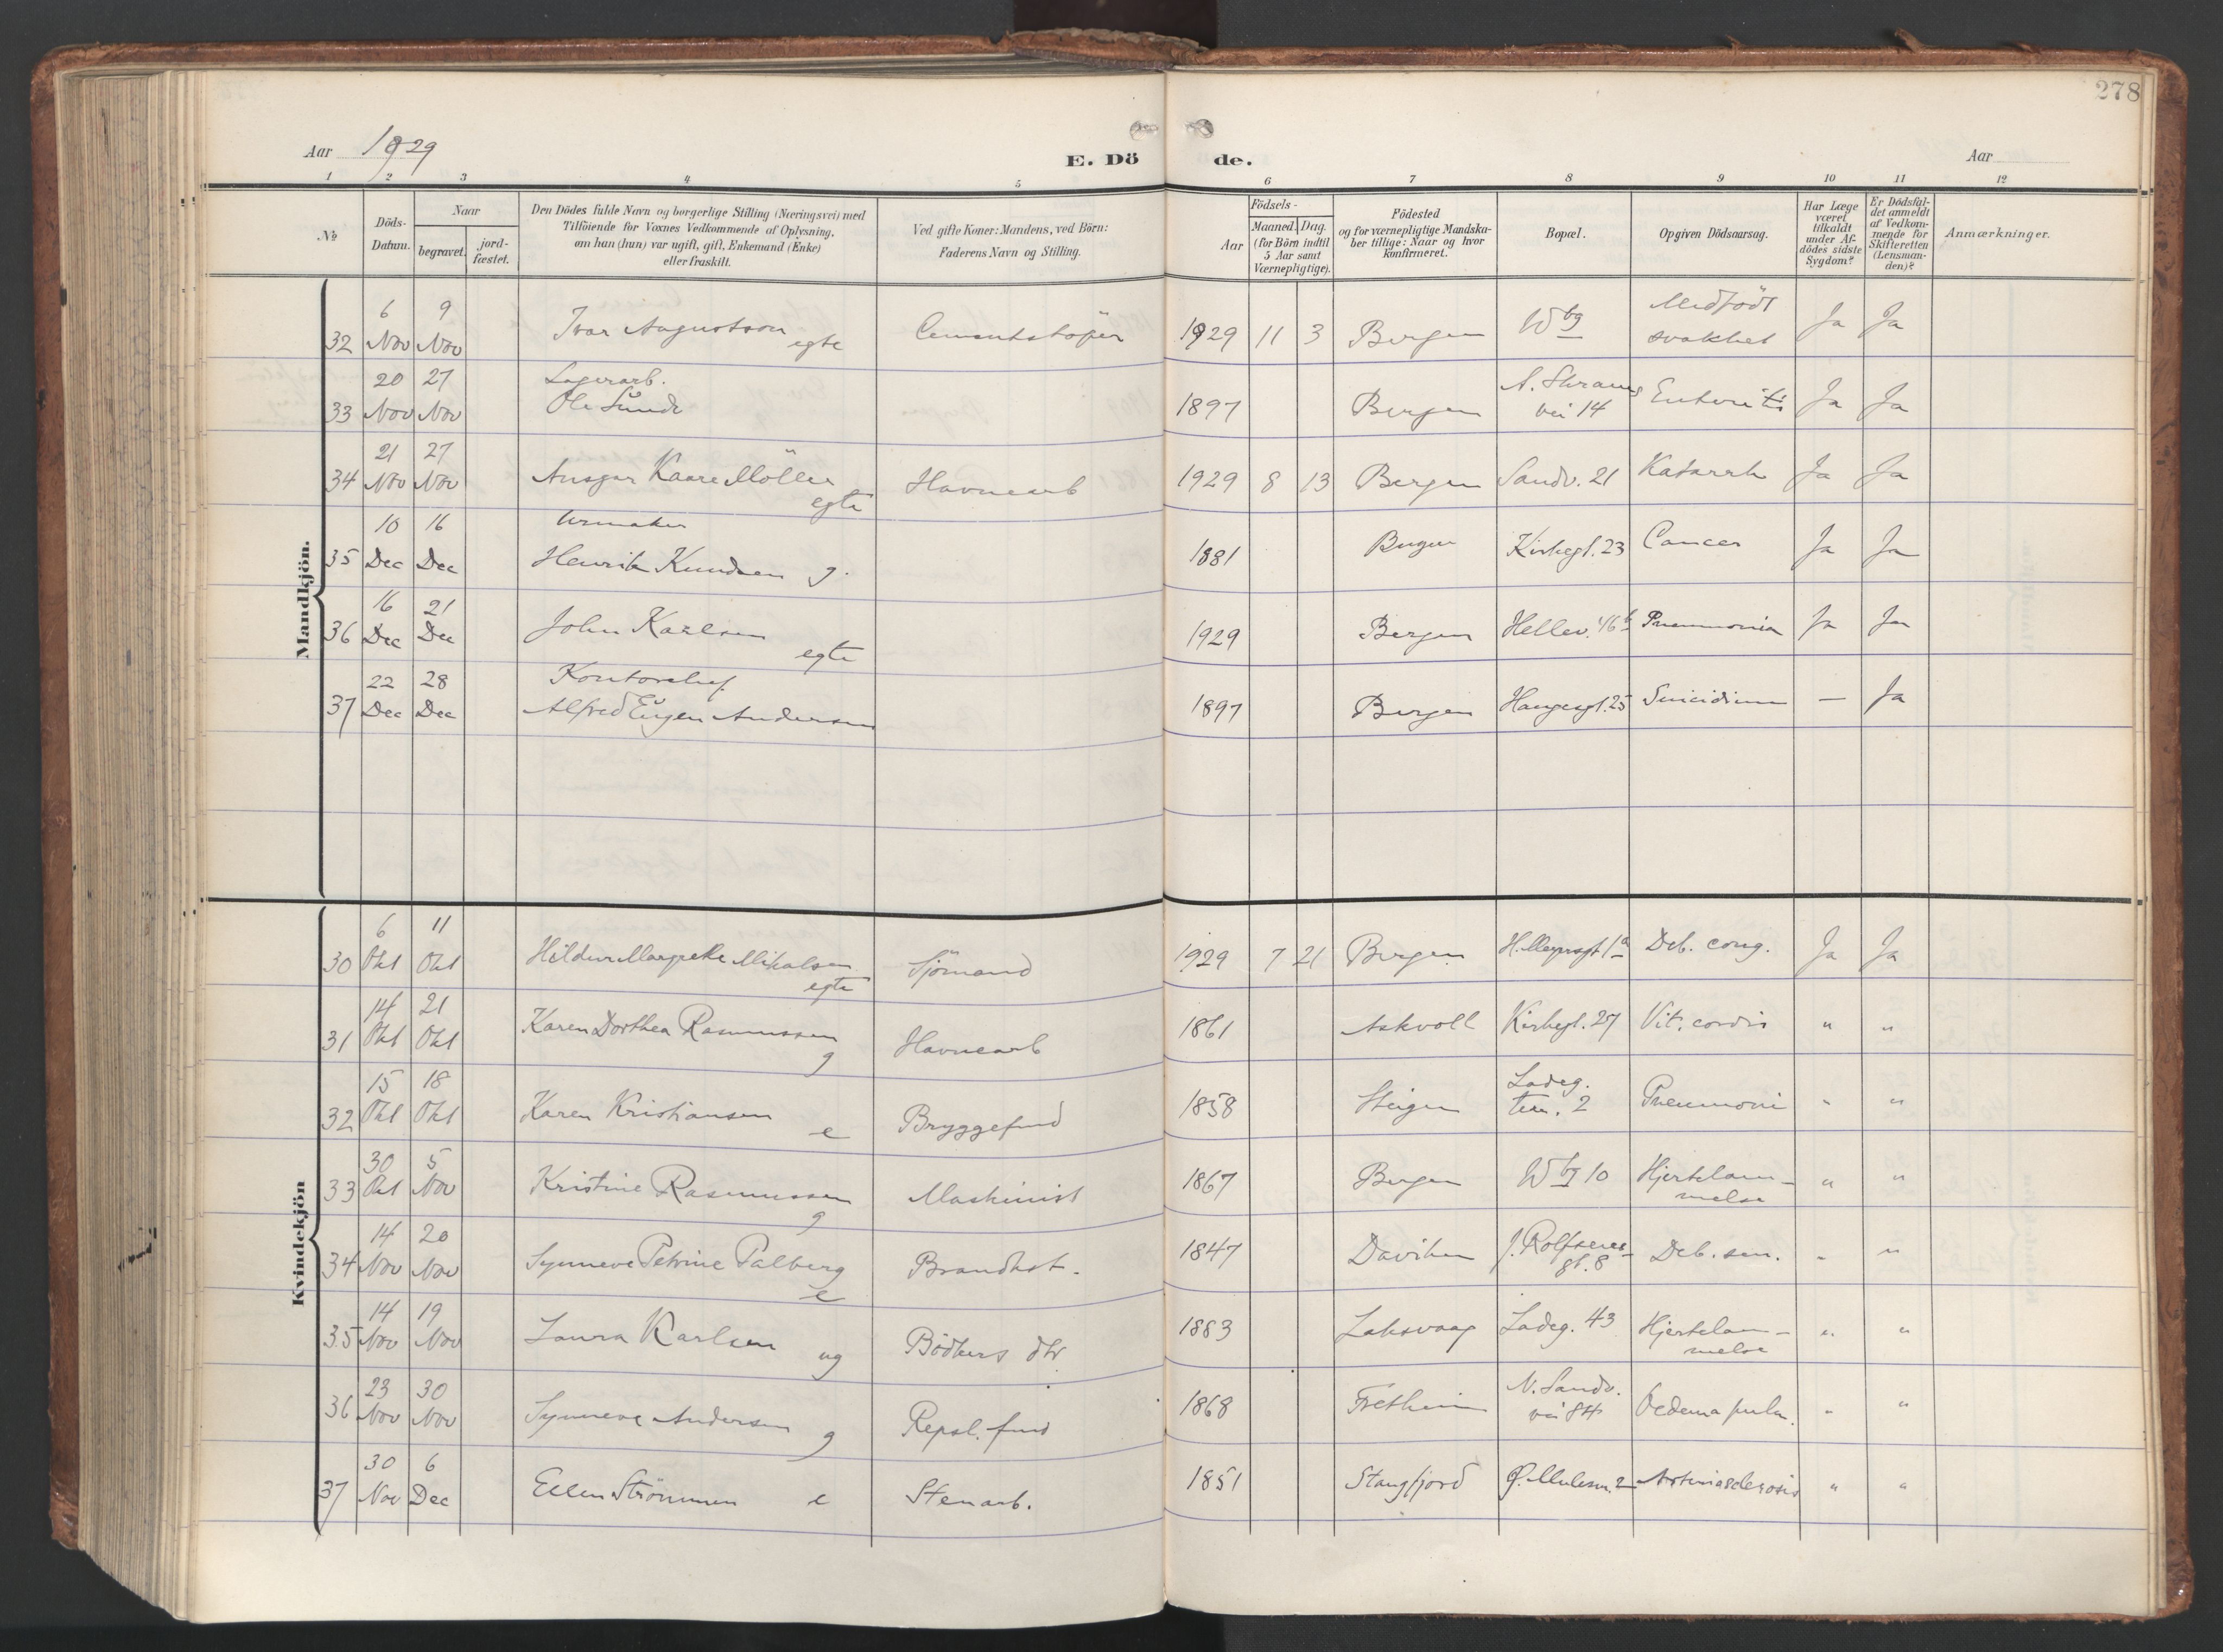 278
Aar 1929
E. Dö de.
Aar
1 2 3 4 5 6 7 8 9 10 11 12
No
Döds-Datum.
Naar
begravet.
jord-fæstet.
Den Dödes fulde Navn og borgerlige Stilling (Næringsvei) med
Tilföiende for Voxnes Vedkommende af Oplysning,
om han (hun) var ugift, gift, Enkemand (Enke)
eller fraskilt.
Ved gifte Koner: Mandens, ved Börn:
Faderens Navn og Stilling.
Födsels-
Aar
Maaned. Dag.
(for Börn indtil
5 Aar samt
Værnepligtige).
Födested
og for værnepligtige Mandska-
ber tillige: Naar og hvor
konfirmeret.
Bopæl.
Opgiven Dödsaarsag.
Har Læge
været
tilkaldt
under Af-
dödes sidste
Sygdom?
Er Dödsfal-
det anmeldt
af Vedkom-
mende for
Skifteretten
(Lensman-
den)?
Anmærkninger.
Mandkjön.
32 6 Nov 9 Nov Ivar Augustson egte Cementstöper 1929 11 3 Bergen Wbg Medfödt svakhet Ja Ja
33 20 Nov 27 Nov Lagerarb. Ole Sunde 1897 Bergen vei 14 Enteritis Ja Ja
34 21 Nov 27 Nov Ansgar Kaare Möller egte Havnearb 1929 8 13 Bergen Sandv. 21 Katarrh Ja Ja
35 10 Dec 16 Dec Urmaker Henrik Knudsen g. 1881 Bergen Kirkegt. 23 Cancer Ja Ja
36 16 Dec 21 Dec John Karlsen egte 1929 Bergen Hellev. 46b Pneumonia Ja Ja
37 22 Dec 28 Dec Kontorchef Alfred Eugen Andersen 1897 Bergen Haugegt. 25 Suicidium — Ja
Kvindekjön
30 6 Okt 11 Okt Hildur Margrethe Mikalsen egte Sjömand 1929 7 21 Bergen H. Meyersgt 1a Deb. cong. Ja Ja
31 14 Okt 21 Okt Karen Dorthea Rasmussen g Havnearb 1861 Askvoll Kirkegt. 27 Vit. cordis " "
32 15 Okt 18 Okt Karen Kristiansen e Bryggefmd 1858 Steigen Ladeg. ter. 2 Pneumoni " "
33 30 Okt 5 Nov Kristine Rasmussen g Maskinist 1867 Bergen Wbg 10 Hjertelam-melse " "
34 14 Nov 20 Nov Synneve Petrine Palberg e Brandkst. 1847 Daviken J. Rolfsens-gt. 8 Deb. sen. " "
35 14 Nov 19 Nov Laura Karlsen ug Bödkers dtr 1883 Laksvaag Ladeg. 43 Hjertelam-melse " "
36 23 Nov 30 Nov Synneve Andersen g Repsl. fmd 1868 Fretheim N. Sandv. vei 84 Oedema pulm. " "
37 30 Nov 6 Dec Ellen Strömmen e Stenarb. 1851 Stangfjord Ø. Mulesm. 2 Arteriosclerosis " "